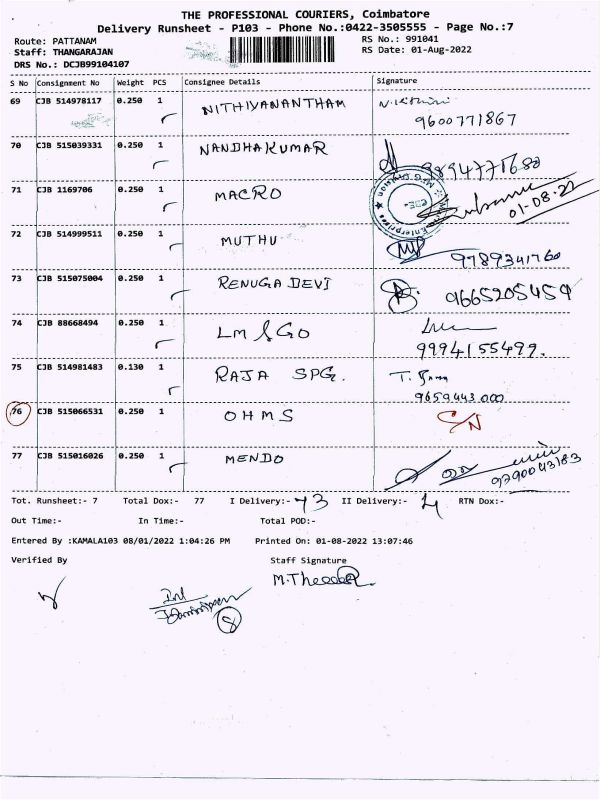 THE PROFESSIONAL COURIERS, Coimbatore
Delivery Runsheet - P103 - Phone No.:0422-3505555 - Page No.:7
Route: PATTANAM RS No.: 991041
Staff: THANGARAJAN RS Date: 01-Aug-2022
DRS No.: DCJB99104107
S No Consignment No Weight PCS Consignee Details Signature
69 CJB 514978117 0.250 1 NITHIYANANTHAM
9600771867
70 CJB 515039331 0.250 1 NANDHAKUMAR
71 CJB 1169706 0.250 1 MACRO
01-08-22
72 CJB 514999511 0.250 1 MUTHU
9789341760
73 CJB 515075004 0.250 1 RENUGA DEVI 9665205454
74 CJB 88668494 0.250 1 LM & GO
9994155499.
75 CJB 514981483 0.130 1 RAJA SPG.
9659443000
76 CJB 515066531 0.250 1 OHMS C/N
77 CJB 515016026 0.250 1 MENDO
Tot. Runsheet:- 7 Total Dox:- 77 I Delivery:- 73 II Delivery:- 4 RTN Dox:-
Out Time:- In Time:- Total POD:-
Entered By :KAMALA103 08/01/2022 1:04:26 PM Printed On: 01-08-2022 13:07:46
Verified By Staff Signature
8